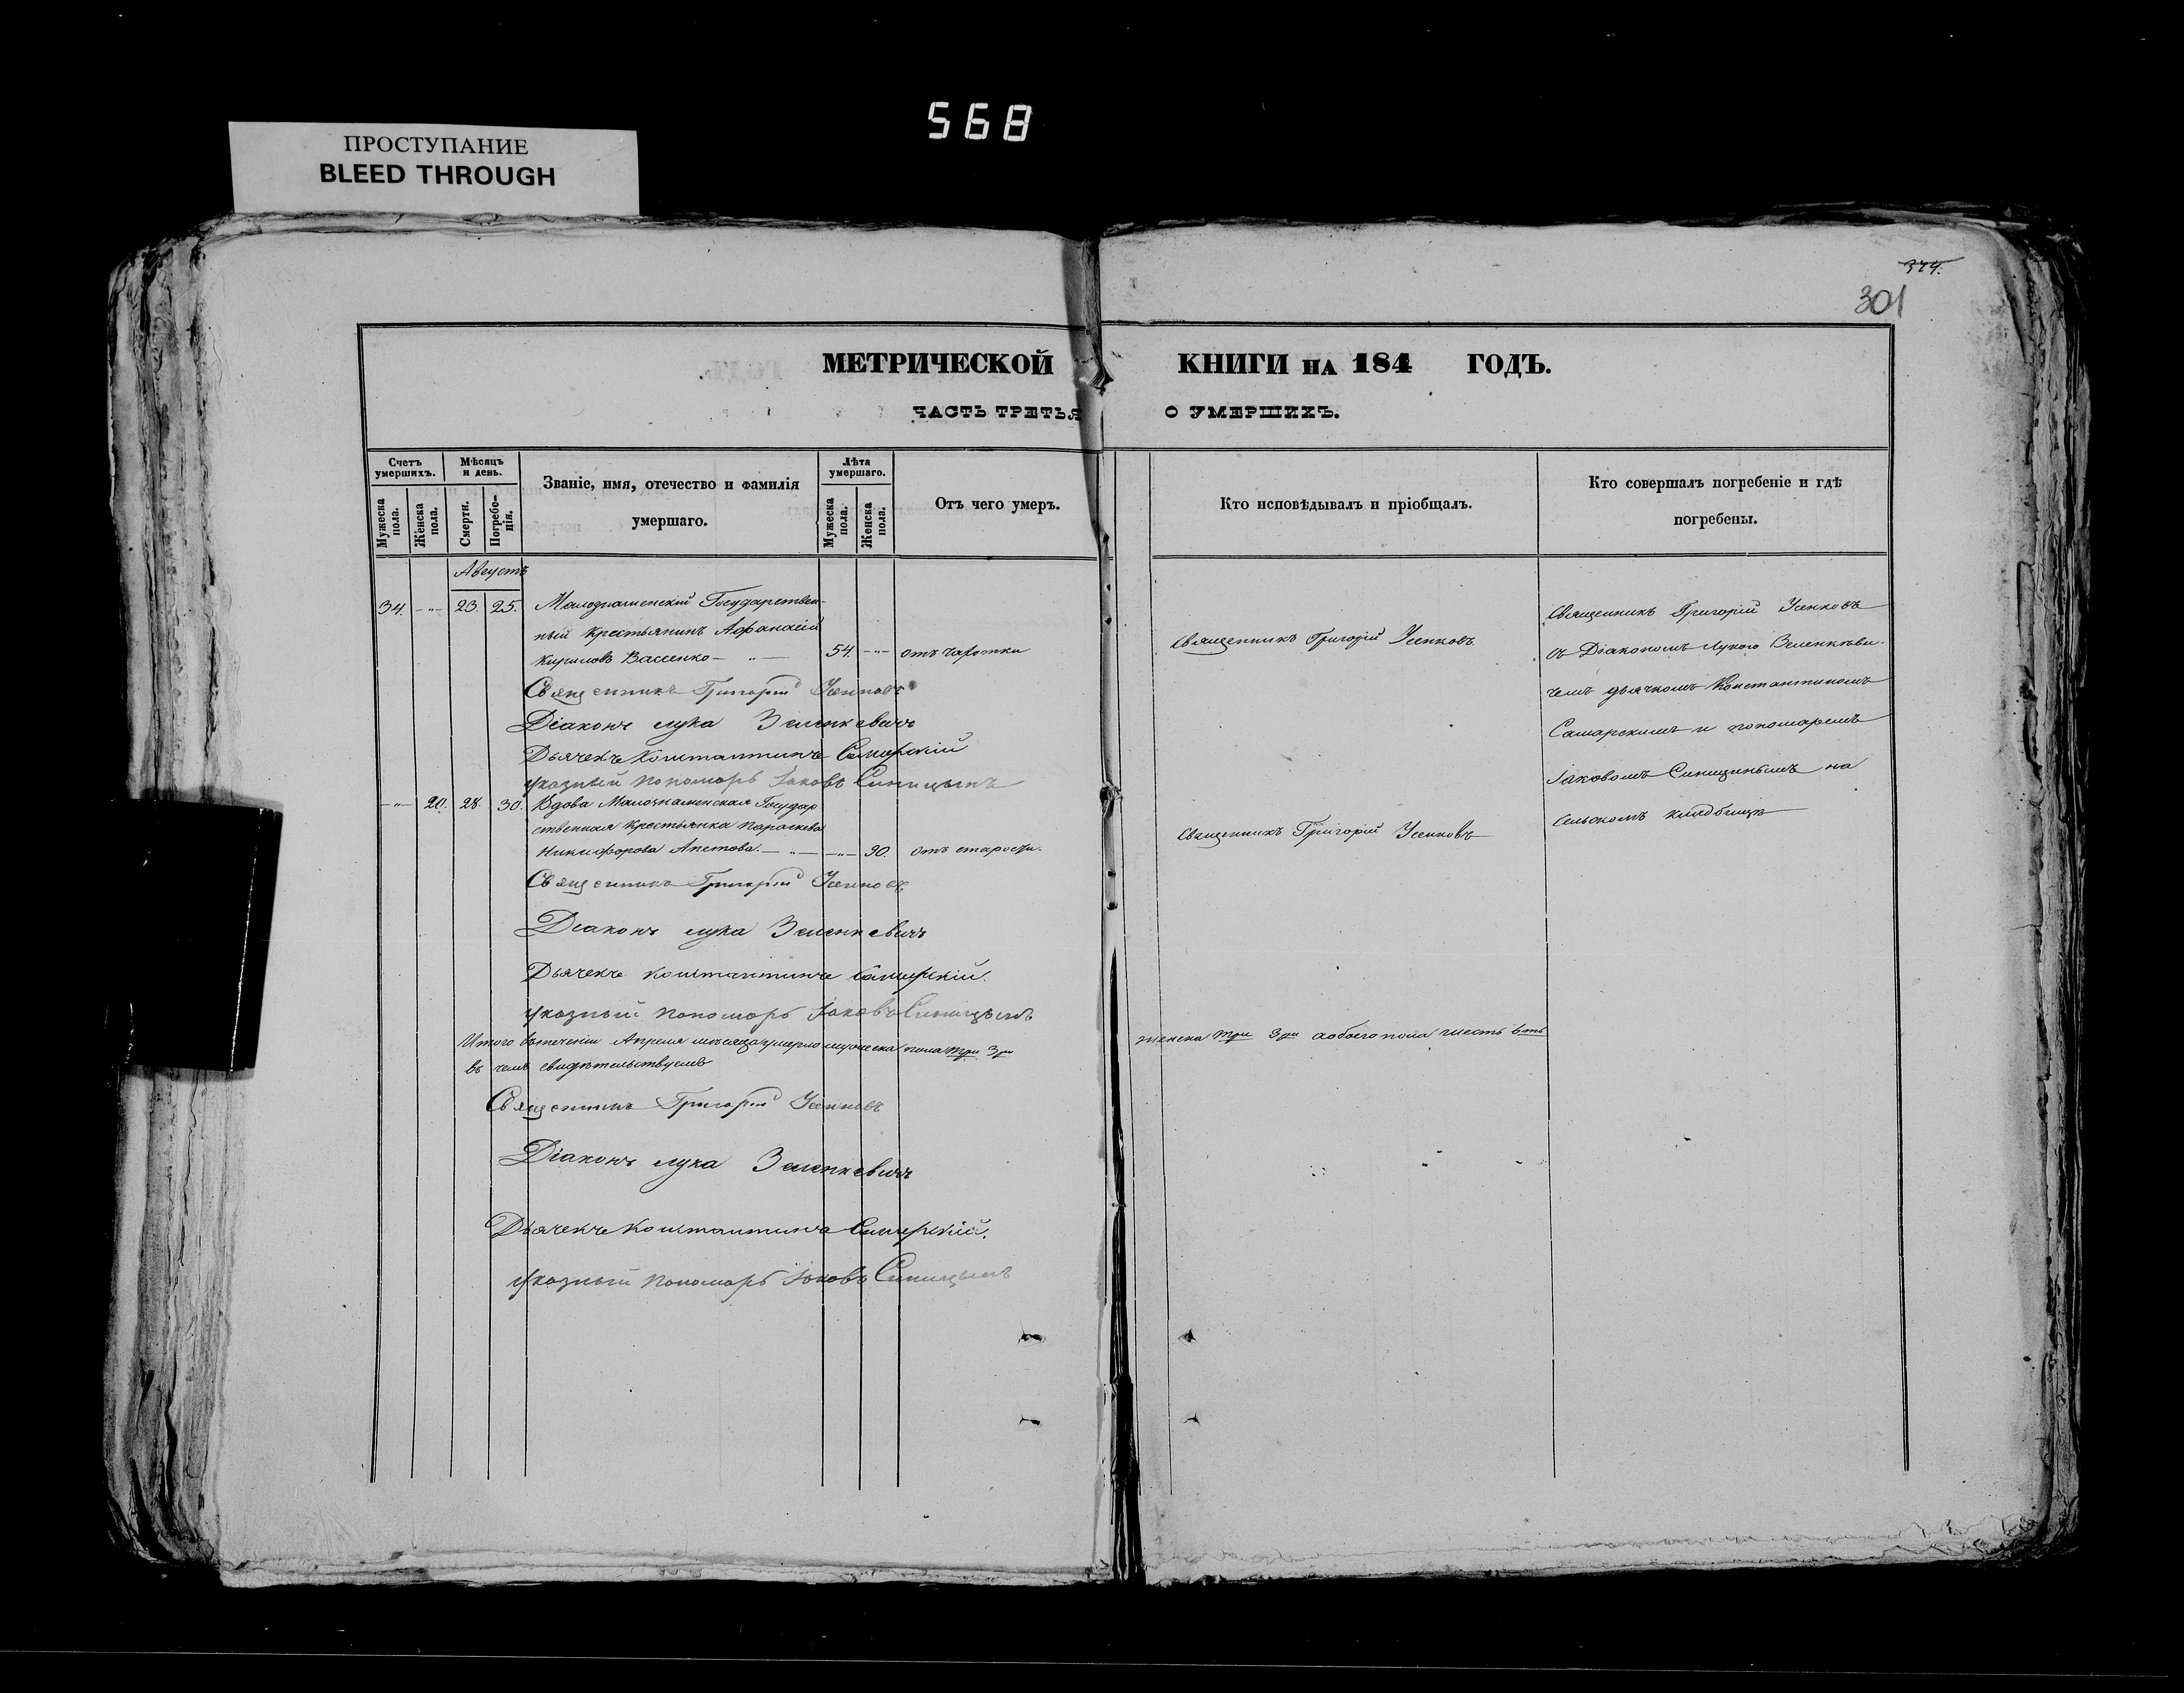 568
ПРОСТУПАНИЕ
BLEED THROUGH
374.
301
МЕТРИЧЕСКОЙ КНИГИ НА 184 ГОДЪ.
ЧАСТЬ ТРЕТЬЯ О УМЕРШИХЪ.
Счетъ умершихъ.
Мужеска пола.
Женска пола.
Мѣсяцъ и день.
Смерти.
Погребе-нія.
Званіе, имя, отечество и фамилія
умершаго.
Лѣта умершаго.
Мужеска пола.
Женска пола.
Отъ чего умеръ.
Кто исповѣдывалъ и пріобщалъ.
Кто совершалъ погребеніе и гдѣ
погребены.
Августъ
34. -"- 23. 25. Малознаменскій Государствен-
ный крестьянинъ Афанасій
Кириловъ Васенко - " - 54. -"- отъ чахотки
Священникъ Григорій Усенковъ
Священникъ Григорій Усенковъ
Діаконъ Лука Зеленкевичъ
Дьячекъ Константинъ Самарскій
указный пономарь Іаковъ Синицынъ
Священникъ Григорій Усенковъ
съ Діакономъ Лукою Зеленкеви-
чемъ дьячкомъ Константиномъ
Самарскимъ и пономаремъ
Іаковомъ Синицинымъ на
сельскомъ кладбищѣ
-"- 20. 28. 30. Вдова Малознаменская Государ
ственная крестьянка Параскева
Никифорова -"- 90. отъ старости.
Священникъ Григорій Усенковъ
Священникъ Григорій Усенковъ
Діаконъ Лука Зеленкевичъ
Дьячекъ Константинъ Самарскій.
указный пономарь Іаковъ Синицынъ
Итого въ теченіи Апреля мѣсяца умерло мужеска пола три 3ри женска три 3ри а обоего пола шесть 6ть
въ чемъ свидѣтельствуемъ
Священникъ Григорій Усенковъ
Діаконъ Лука Зеленкевичъ
Дьячекъ Константинъ Самарскій.
указный пономарь Іаковъ Синицынъ